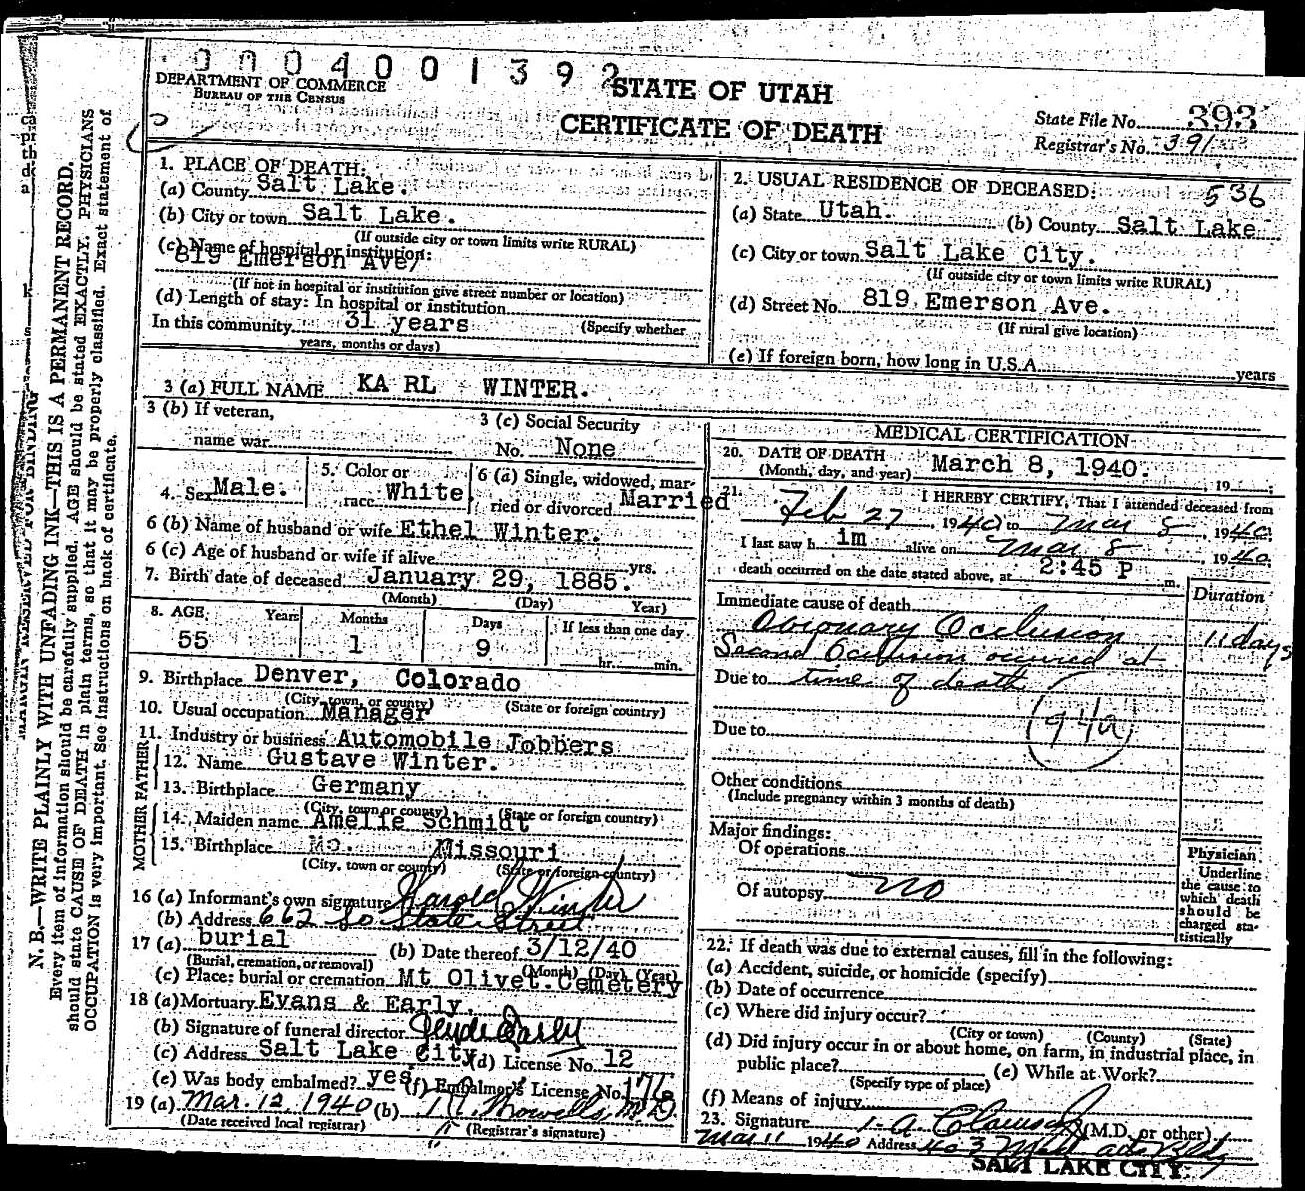 0004001392
DEPARTMENT OF COMMERCE
BUREAU OF THE CENSUS
STATE OF UTAH
CERTIFICATE OF DEATH
State File No. 393
Registrar's No. 391
536
1. PLACE OF DEATH:
(a) County Salt Lake.
(b) City or town Salt Lake.
(If outside city or town limits write RURAL)
(c) Name of hospital or institution:
819 Emerson Ave/
(If not in hospital or institution give street number or location)
(d) Length of stay: In hospital or institution
In this community 31 years (Specify whether
years, months or days)
2. USUAL RESIDENCE OF DECEASED:
(a) State Utah. (b) County Salt Lake
(c) City or town Salt Lake City.
(If outside city or town limits write RURAL)
(d) Street No. 819 Emerson Ave.
(If rural give location)
(e) If foreign born, how long in U.S.A. years
3 (a) FULL NAME KARL WINTER.
3 (b) If veteran,
name war
3 (c) Social Security
No. None
4. Sex Male.
5. Color or
race White
6 (a) Single, widowed, mar-
ried or divorced Married
6 (b) Name of husband or wife Ethel Winter.
6 (c) Age of husband or wife if alive yrs.
7. Birth date of deceased January 29, 1885.
(Month) (Day) Year)
8. AGE Years Months Days If less than one day
55 1 9 hr. min.
9. Birthplace Denver, Colorado
(City, town, or county) (State or foreign country)
10. Usual occupation Manager
11. Industry or business Automobile Jobbers
FATHER
12. Name Gustave Winter.
13. Birthplace Germany
(City, town or county) (State or foreign country)
MOTHER
14. Maiden name Amelie Schmidt
15. Birthplace Mo. Missouri
(City, town or county) (State or foreign country)
16 (a) Informant's own signature Harold Winter
(b) Address 662 So State Street
17 (a) burial (b) Date thereof 3/12/40
(Burial, cremation, or removal) (Month) (Day) (Year)
(c) Place: burial or cremation Mt Olivet Cemetery
18 (a) Mortuary Evans & Early.
(b) Signature of funeral director
(c) Address Salt Lake City (d) License No. 12
(e) Was body embalmed? yes (f) Embalmer's License No. 176
19 (a) Mar. 12, 1940 (b) M.D.
(Date received local registrar) (Registrar's signature)
MEDICAL CERTIFICATION
20. DATE OF DEATH
(Month, day, and year) March 8, 1940. , 19 ;
21. I HEREBY CERTIFY, That I attended deceased from
Feb 27, 1940 to Mar 8, 1940;
I last saw h im alive on Mar 8 1940;
death occurred on the date stated above, at 2:45 P m.
Duration
Immediate cause of death
Coronary Occlusion 11 days
Second Occlusion occured at
Due to time of death
Due to
(94a)
Other conditions
(Include pregnancy within 3 months of death)
Major findings:
Of operations
Of autopsy no
Physician
Underline
the cause to
which death
should be
charged sta-
tistically
22. If death was due to external causes, fill in the following:
(a) Accident, suicide, or homicide (specify)
(b) Date of occurrence
(c) Where did injury occur?
(City or town) (County) (State)
(d) Did injury occur in or about home, on farm, in industrial place, in
public place? (e) While at Work?
(Specify type of place)
(f) Means of injury
23. Signature (M.D. or other)
Mar 11 1940 Address 403 Bldg
SALT LAKE CITY.
N. B.—WRITE PLAINLY WITH UNFADING INK—THIS IS A PERMANENT RECORD.
Every item of information should be carefully supplied. AGE should be stated EXACTLY. PHYSICIANS
should state CAUSE OF DEATH in plain terms, so that it may be properly classified. Exact statement of
OCCUPATION is very important. See instructions on back of certificate.